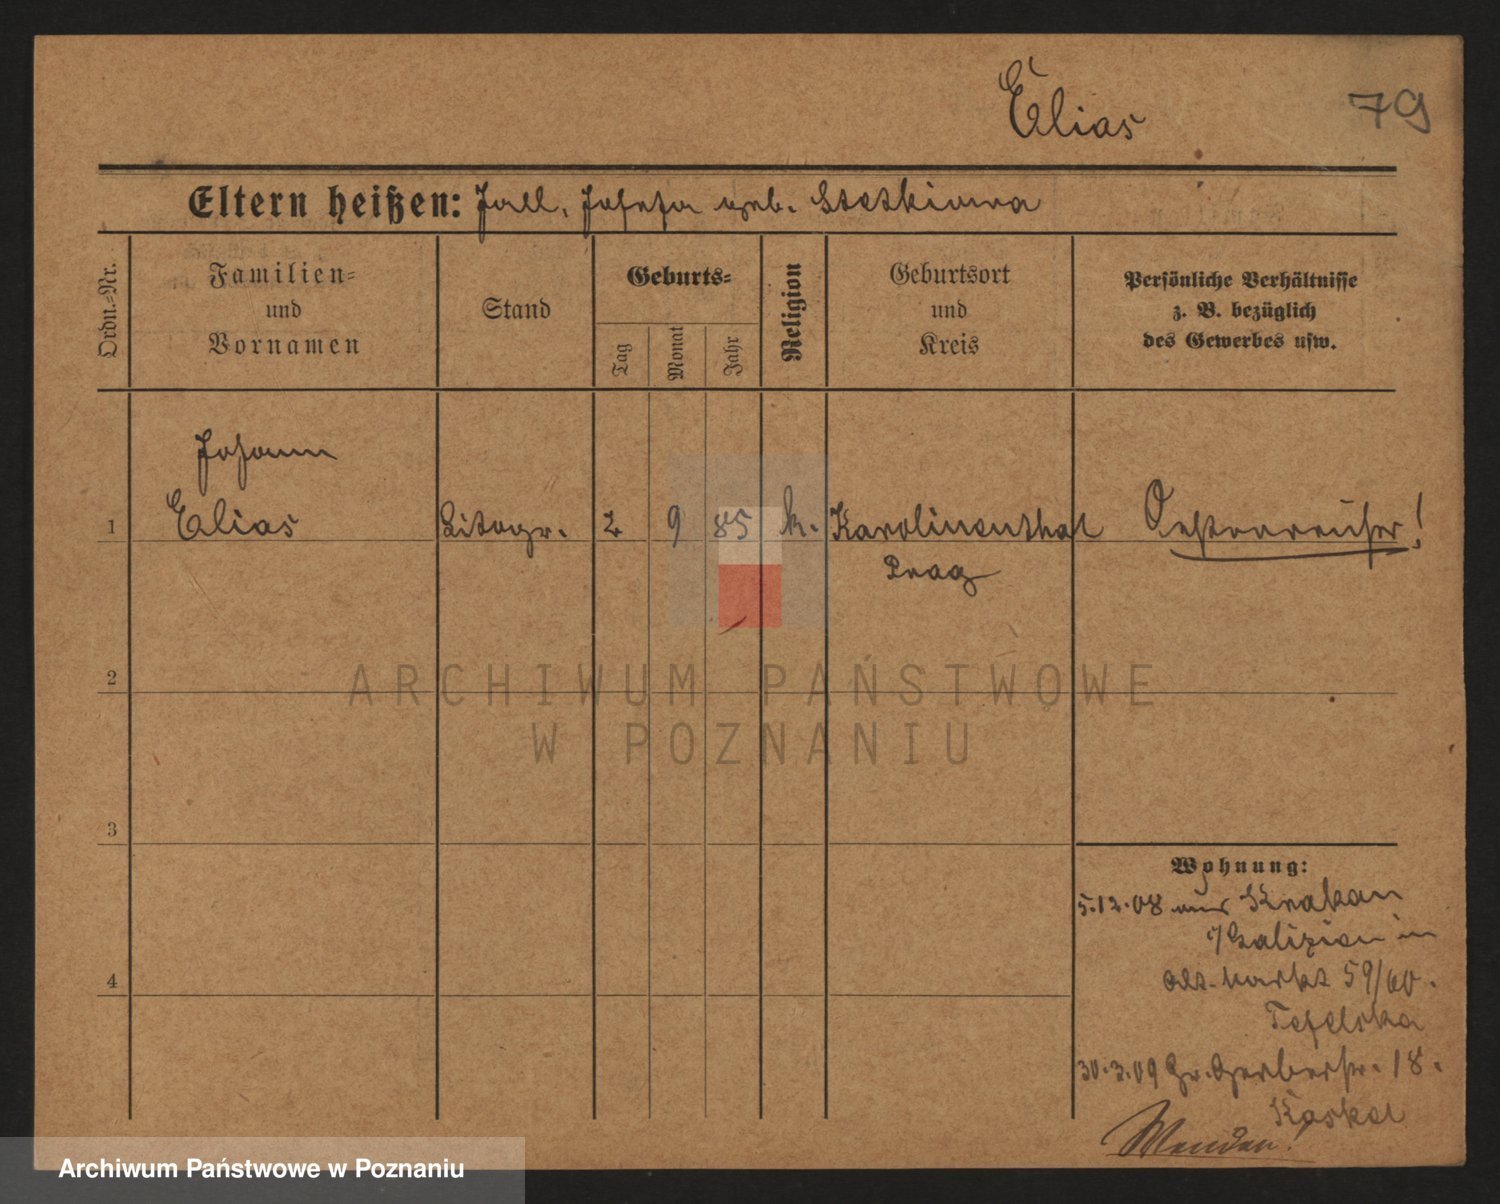 Elias 79
Eltern heißen: Josefa geb.
Ordn.-Nr.
Familien-
und
Vornamen
Stand
Geburts-
Tag
Monat
Jahr
Religion
Geburtsort
und
Kreis
Persönliche Verhältnisse
z. B. bezüglich
des Gewerbes usw.
Johann
1 Elias Litogr. 2 9 85 k. Karolinenthal Oesterreicher!
Prag
2
ARCHIWUM PAŃSTWOWE
W POZNANIU
3
Wohnung:
5.12.08 aus Krakau
Galizien in
Alt. Markt 59/60.
4
30.3.09 Gr. Gerberstr. 18.
Wenden!
Archiwum Państwowe w Poznaniu